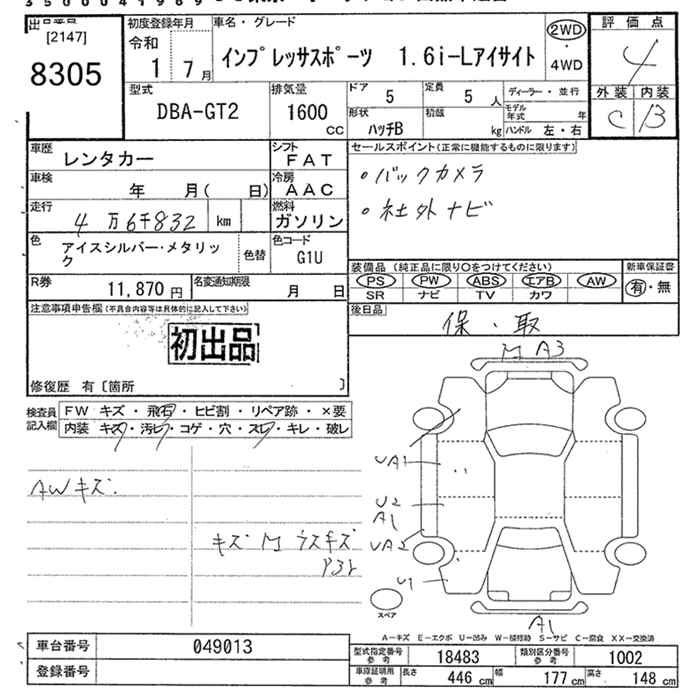 3500041989
出品番号
[2147]
8305
初度登録年月
令和
1 7月
車名・グレード
インプレッサスポーツ 1.6i-Lアイサイト
2WD
・
4WD
評価点
4
外装 内装
C B
型式
DBA-GT2
排気量
1600
CC
ドア 5
定員 5 人
形状 ハッチB
積載 kg
ディーラー・並行
モデル年式 年
ハンドル 左・右
車歴 レンタカー
シフト FAT
車検 年 月( 日)
冷房 AAC
走行 4万6千832 km
燃料 ガソリン
色 アイスシルバー・メタリック
色替
色コード G1U
R券 11,870円
名変通知期限 月 日
セールスポイント(正常に機能するものに限ります)
・バックカメラ
・社外ナビ
装備品(純正品に限り○をつけてください)
PS PW ABS エアB AW
SR ナビ TV カワ
新車保証書
有・無
後日品
保・取
注意事項申告欄(不具合内容等は具体的に記入して下さい)
初出品
修復歴 有〔箇所 〕
検査員記入欄
FW キズ・飛石・ヒビ割・リペア跡・×要
内装 キズ・汚レ・コゲ・穴・スレ・キレ・破レ
AWキズ.
キズM ラスキズ
M A3
UA1
U2
A1
UA2
U1
スペア
A1
A-キズ E-エクボ U-凹み W-補修跡 S-サビ C-腐食 XX-交換済
車台番号 049013
登録番号
型式指定番号 参考 18483
類別区分番号 参考 1002
車庫証明用 参考 長さ 446cm 幅 177cm 高さ 148cm